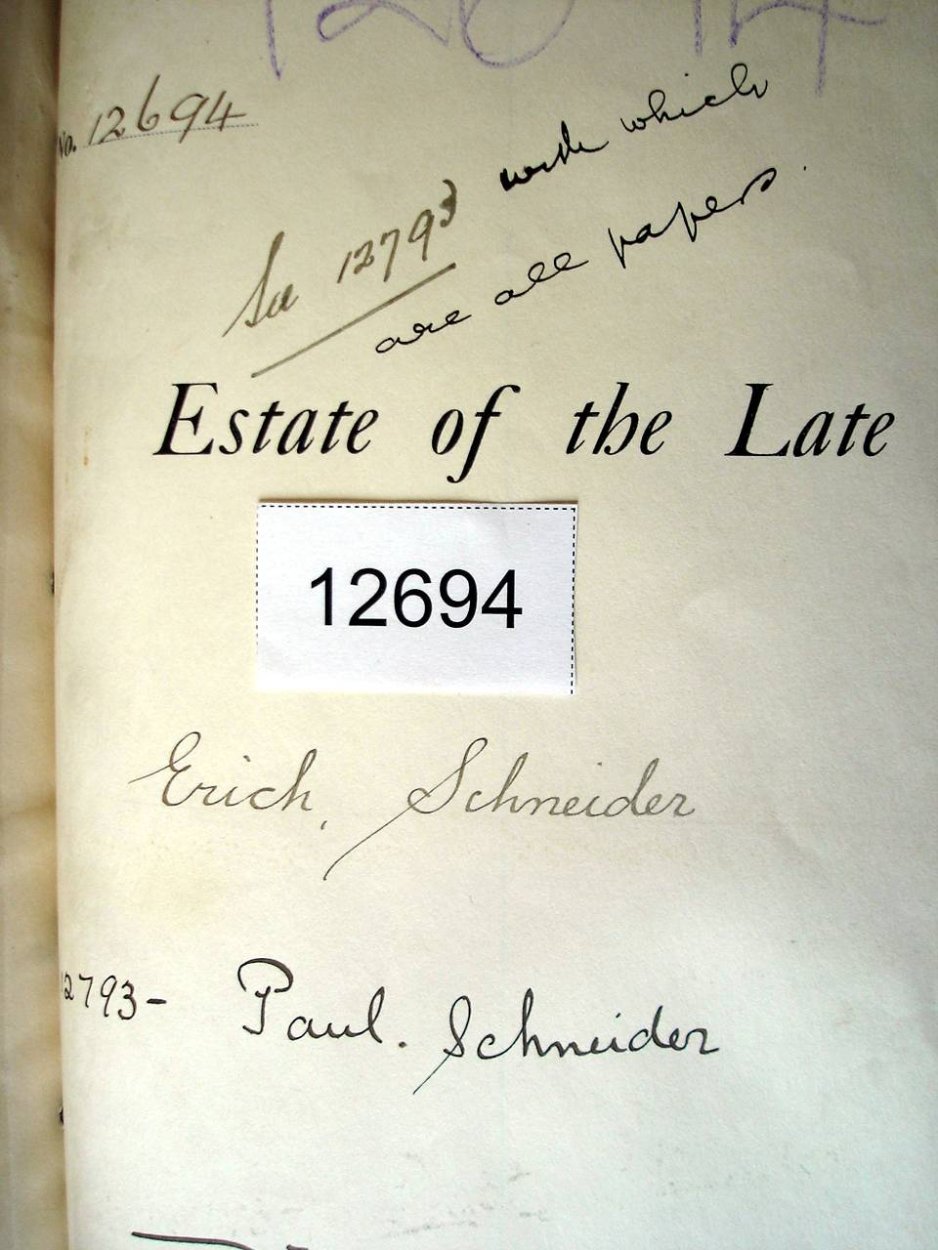 No. 12694
See 12793 with which
are all papers.
Estate of the Late
12694
Erich, Schneider
2793- Paul. Schneider